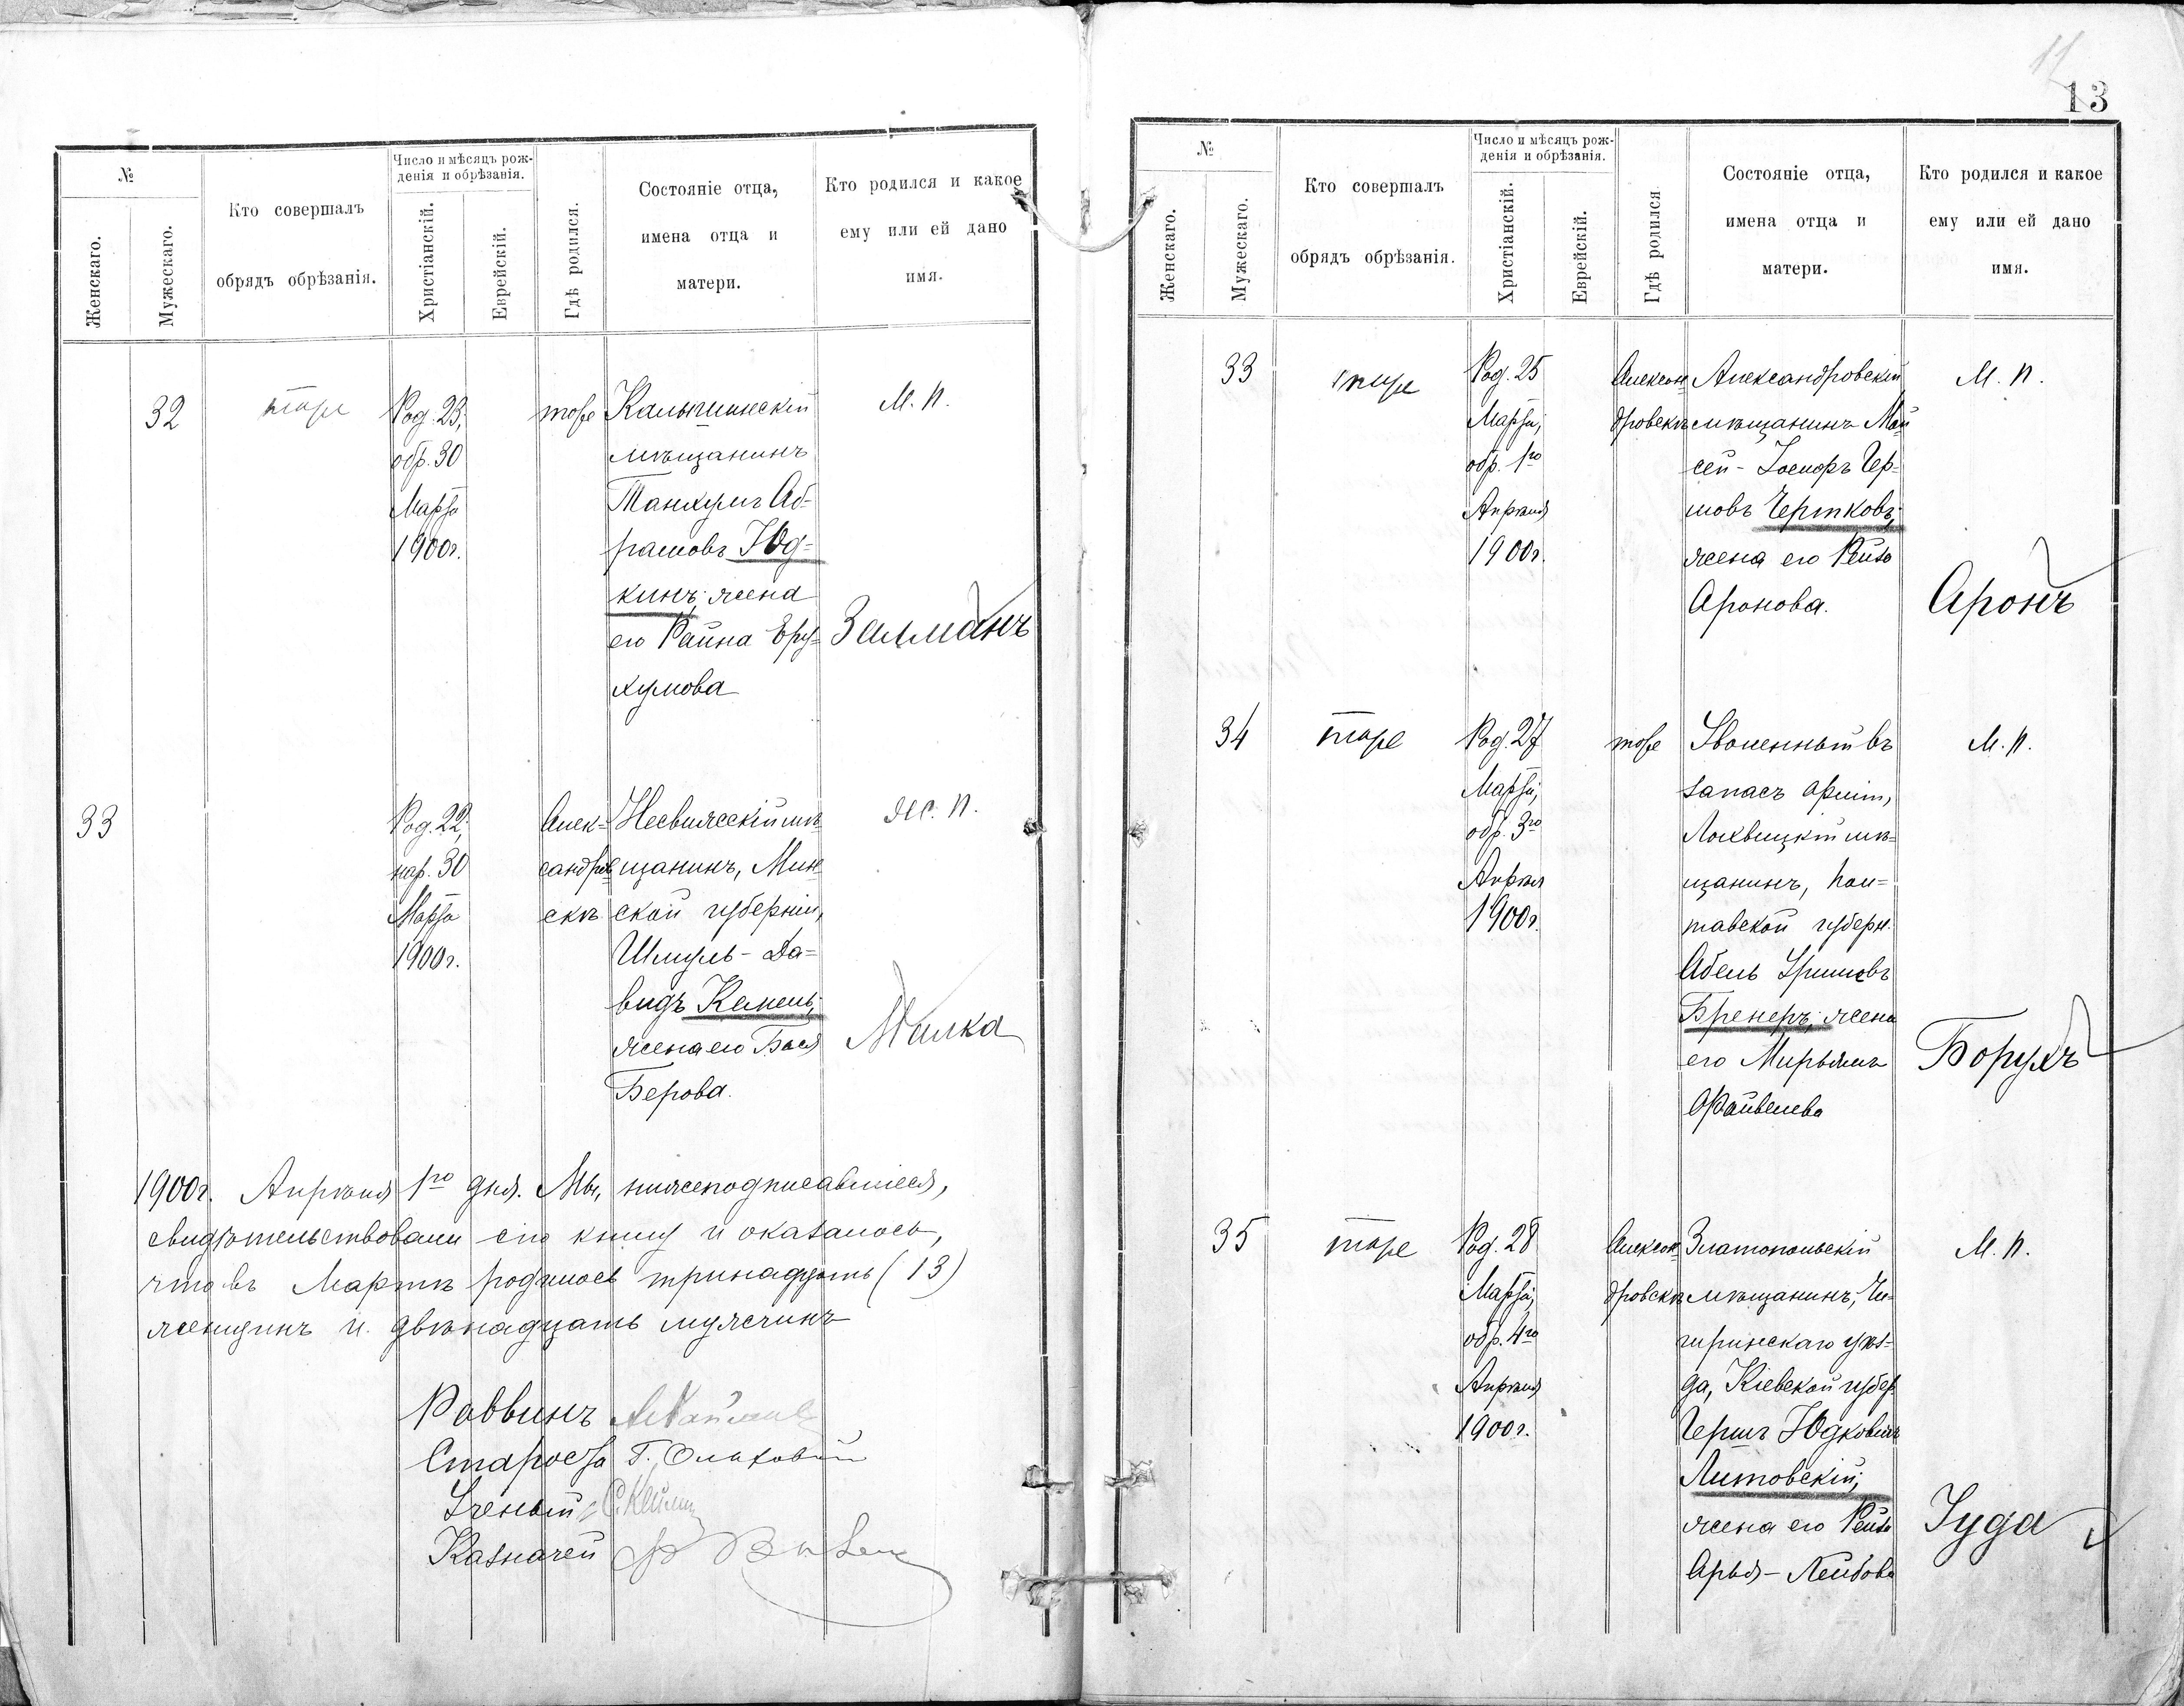 11
13
№
Женскаго.
Мужескаго.
Кто совершалъ
обрядъ обрѣзанія.
Число и мѣсяцъ рож-
денія и обрѣзанія.
Христіанскій.
Еврейскій.
Гдѣ родился.
Состояніе отца,
имена отца и
матери.
Кто родился и какое
ему или ей дано
имя.
32
тоже
Род. 23,
обр. 30
Марта
1900г.
тоже
мѣщанинъ
Танхумъ Аб-
рамовъ Юд-
кинъ; жена
его Райна Еру-
хумова
М. п.
Залманъ
33
Род. 22,
нар. 30
Марта
1900г.
Алек-
сандров-
скѣ
Несвижскій мѣ-
щанинъ, Мин-
ской губерніи,
Шмуль-Да-
видъ Камень;
жена его Бася
Берова.
Ж. п.
Малка
1900г. Апрѣля 1го дня. Мы, нижеподписавшіеся,
свидѣтельствовали сію книгу и оказалось,
что въ Мартѣ родилось тринадцать (13)
женщинъ и двѣнадцать мужчинъ
Раввинъ
Староста Г.
Ученый
Казначей
№
Женскаго.
Мужескаго.
Кто совершалъ
обрядъ обрѣзанія.
Число и мѣсяцъ рож-
денія и обрѣзанія.
Христіанскій.
Еврейскій.
Гдѣ родился
Состояніе отца,
имена отца и
матери.
Кто родился и какое
ему или ей дано
имя.
33
тоже
Род. 25
Марта,
обр. 1го
Апрѣля
1900г.
Алексан-
дровскѣ
Александровскій
мѣщанинъ Мой-
сей-Іосифъ Гер-
шовъ Чертковъ;
жена его Рейза
Аронова.
М. п.
Аронъ
34
тоже
Род. 27
Марта,
обр. 3го
Апрѣля
1900г.
тоже
Уволенный въ
запасъ арміи,
Лохвицкій мѣ-
щанинъ, Пол-
тавской губерн.
Абель
Бренеръ; жена
его Мирьямъ
Файвелева
М. п.
Борухъ
35
тоже
Род. 28
Марта,
обр. 4го
Апрѣля
1900г.
Алексан-
дровскѣ
Златопольскій
мѣщанинъ, Чи-
гиринскаго уѣз-
да, Кіевской губер.
Гершъ Юдковичъ
Литовскій;
жена его Рейза
Арья-Лейбова
М. п.
Іуда